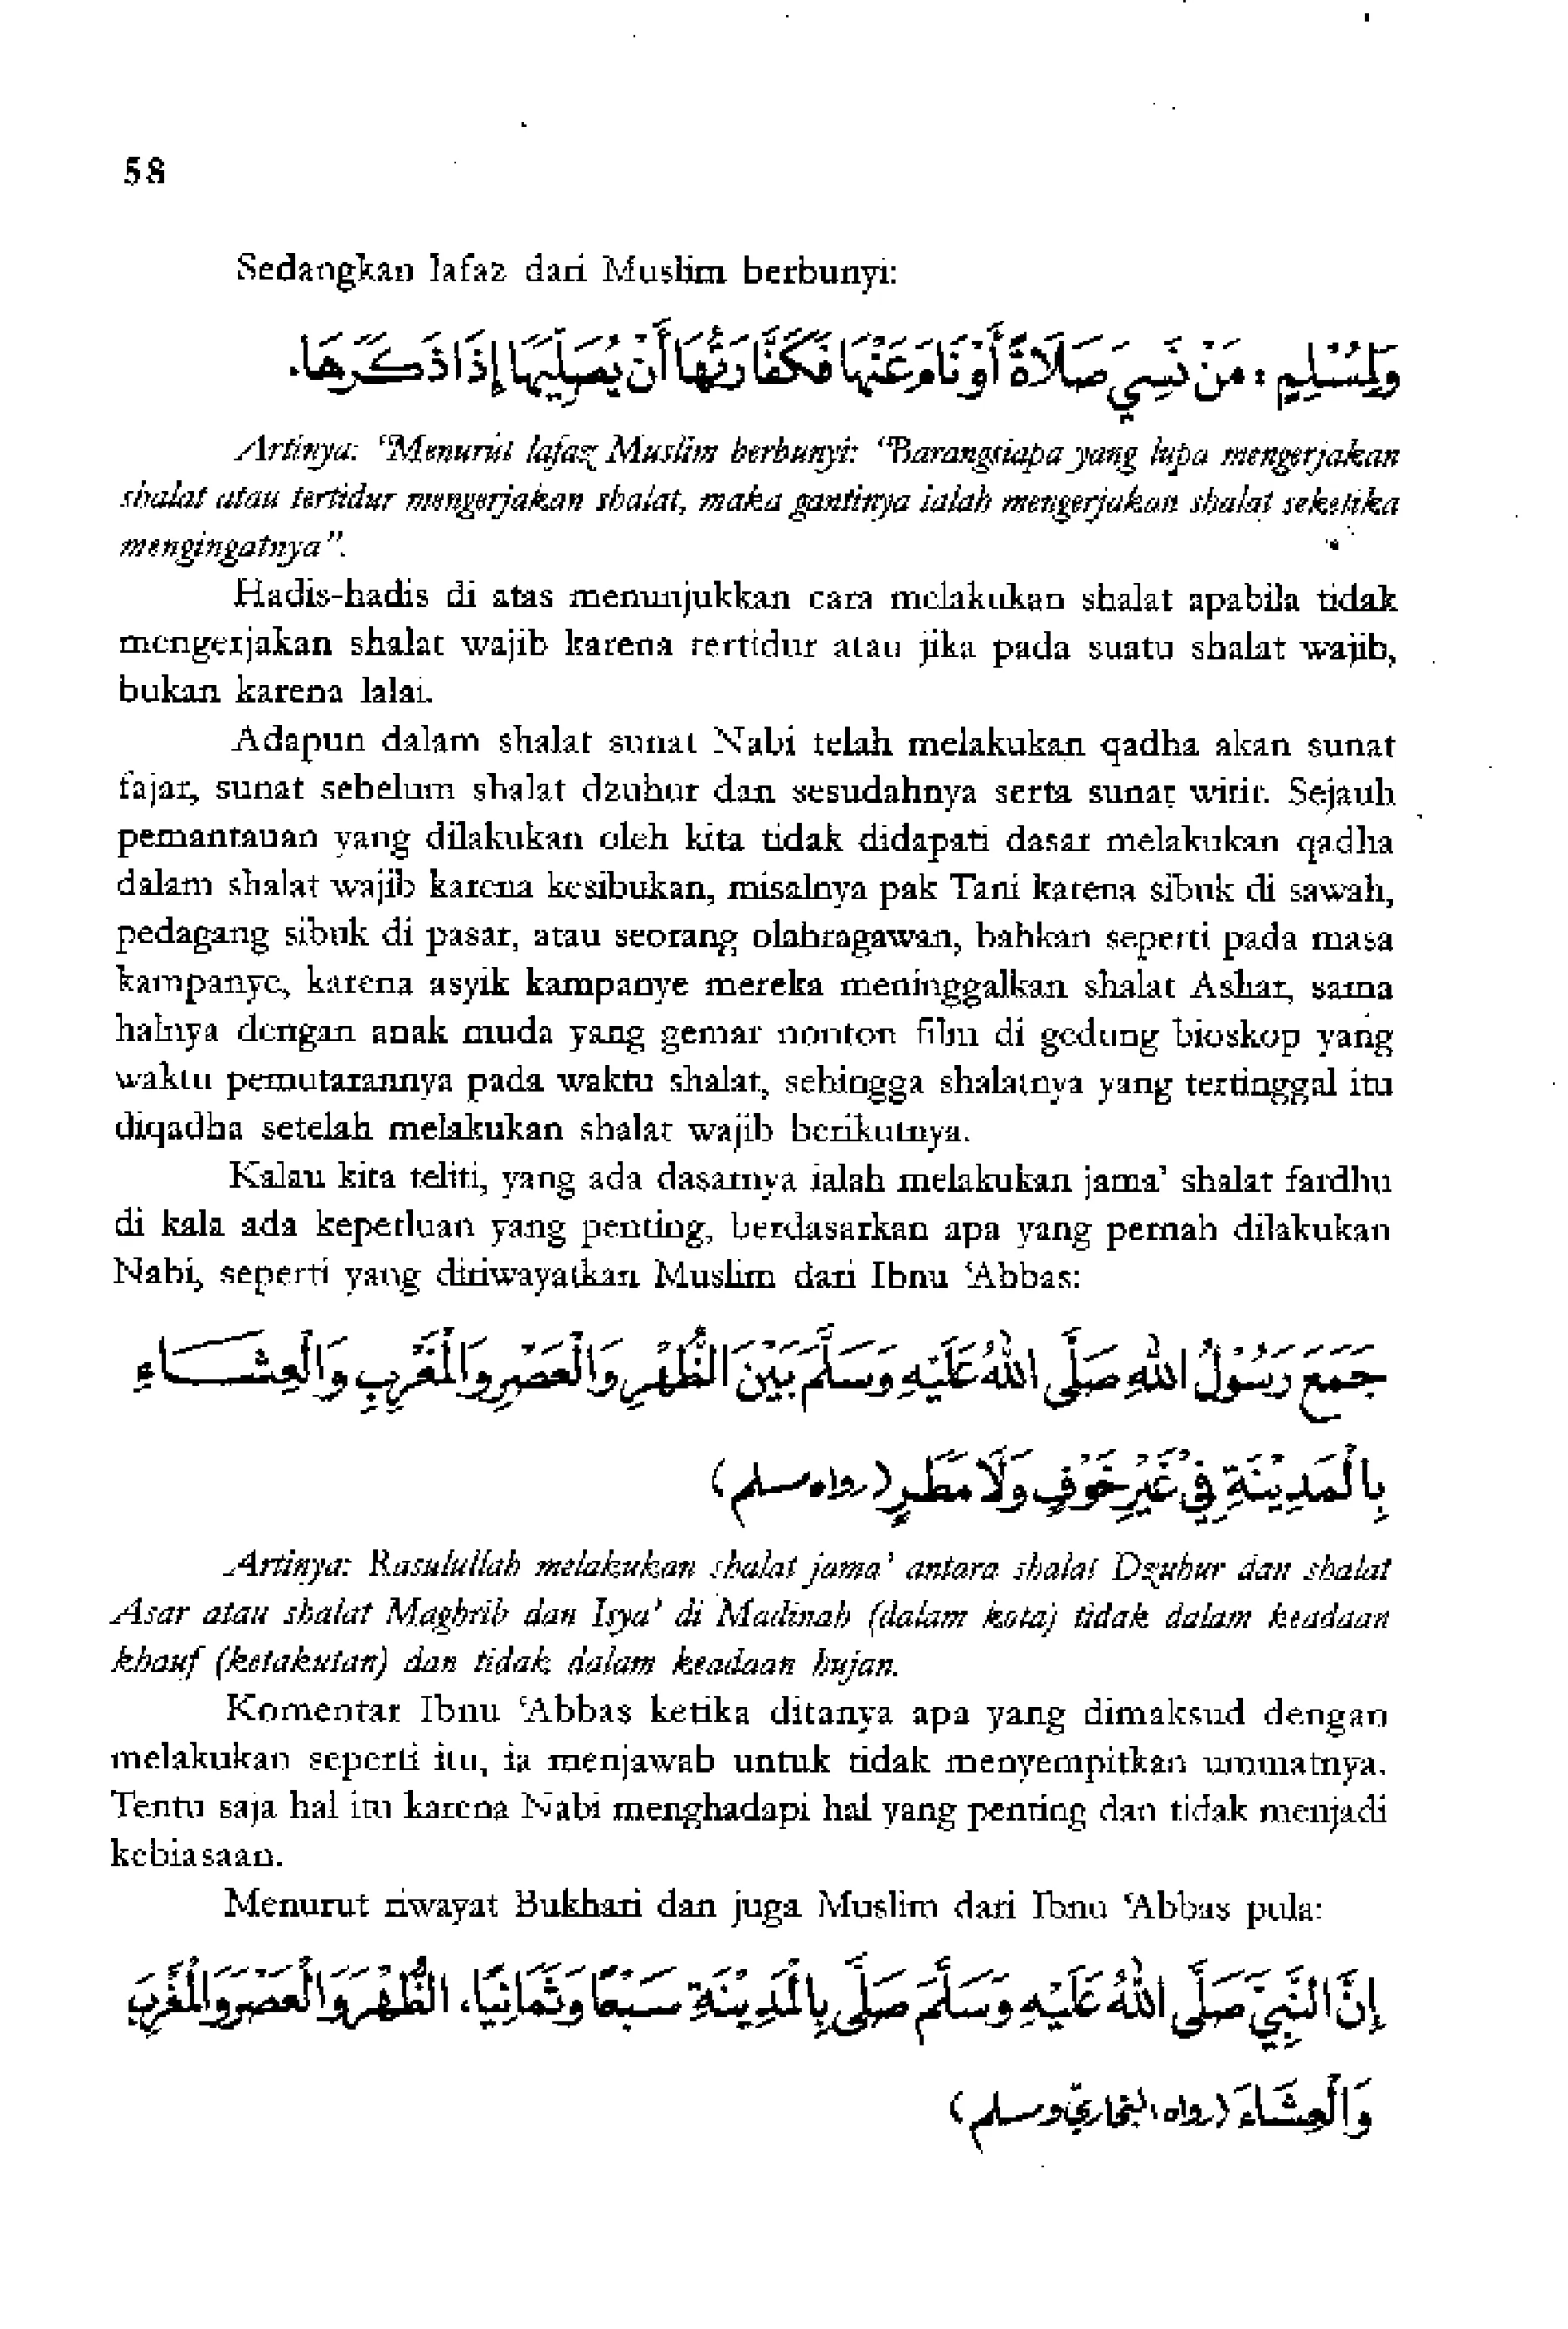 58
Sedangkan lafaz dari Muslim berbunyi:
وَلِمُسْلِمٍ : مَنْ نَسِيَ صَلَاةً أَوْ نَامَ عَنْهَا فَكَفَّارَتُهَا أَنْ يُصَلِّيَهَا إِذَا ذَكَرَهَا.
Artinya: "Menurut lafaz Muslim berbunyi: "Barangsiapa yang lupa mengerjakan
shalat atau tertidur mengerjakan shalat, maka gantinya ialah mengerjakan shalat seketika
mengingatnya".
Hadis-hadis di atas menunjukkan cara melakukan shalat apabila tidak
mengerjakan shalat wajib karena tertidur atau jika pada suatu shalat wajib,
bukan karena lalai.
Adapun dalam shalat sunat Nabi telah melakukan qadha akan sunat
fajar, sunat sebelum shalat dzuhur dan sesudahnya serta sunat witir. Sejauh
pemantauan yang dilakukan oleh kita tidak didapati dasar melakukan qadha
dalam shalat wajib karena kesibukan, misalnya pak Tani karena sibuk di sawah,
pedagang sibuk di pasar, atau seorang olahragawan, bahkan seperti pada masa
kampanye, karena asyik kampanye mereka meninggalkan shalat Ashar, sama
halnya dengan anak muda yang gemar nonton film di gedung bioskop yang
waktu pemutarannya pada waktu shalat, sehingga shalatnya yang tertinggal itu
diqadha setelah melakukan shalat wajib berikutnya.
Kalau kita teliti, yang ada dasarnya ialah melakukan jama' shalat fardhu
di kala ada keperluan yang penting, berdasarkan apa yang pernah dilakukan
Nabi, seperti yang diriwayatkan Muslim dari Ibnu 'Abbas:
جَمَعَ رَسُوْلُ اللهِ صَلَّى اللهُ عَلَيْهِ وَسَلَّمَ بَيْنَ الظُّهْرِ وَالْعَصْرِ وَالْمَغْرِبِ وَالْعِشَاءِ
بِالْمَدِيْنَةِ فِيْ غَيْرِ خَوْفٍ وَلَا مَطَرٍ (رواه مسلم)
Artinya: Rasulullah melakukan shalat jama' antara shalat Dzuhur dan shalat
Asar atau shalat Maghrib dan Isya' di Madinah (dalam kota) tidak dalam keadaan
khauf (ketakutan) dan tidak dalam keadaan hujan.
Komentar Ibnu 'Abbas ketika ditanya apa yang dimaksud dengan
melakukan seperti itu, ia menjawab untuk tidak menyempitkan ummatnya.
Tentu saja hal itu karena Nabi menghadapi hal yang penting dan tidak menjadi
kebiasaan.
Menurut riwayat Bukhari dan juga Muslim dari Ibnu 'Abbas pula:
إِنَّ النَّبِيَّ صَلَّى اللهُ عَلَيْهِ وَسَلَّمَ صَلَّى بِالْمَدِيْنَةِ سَبْعًا وَثَمَانِيًا، الظُّهْرَ وَالْعَصْرَ وَالْمَغْرِبَ
وَالْعِشَاءَ (رواه البخاري ومسلم)